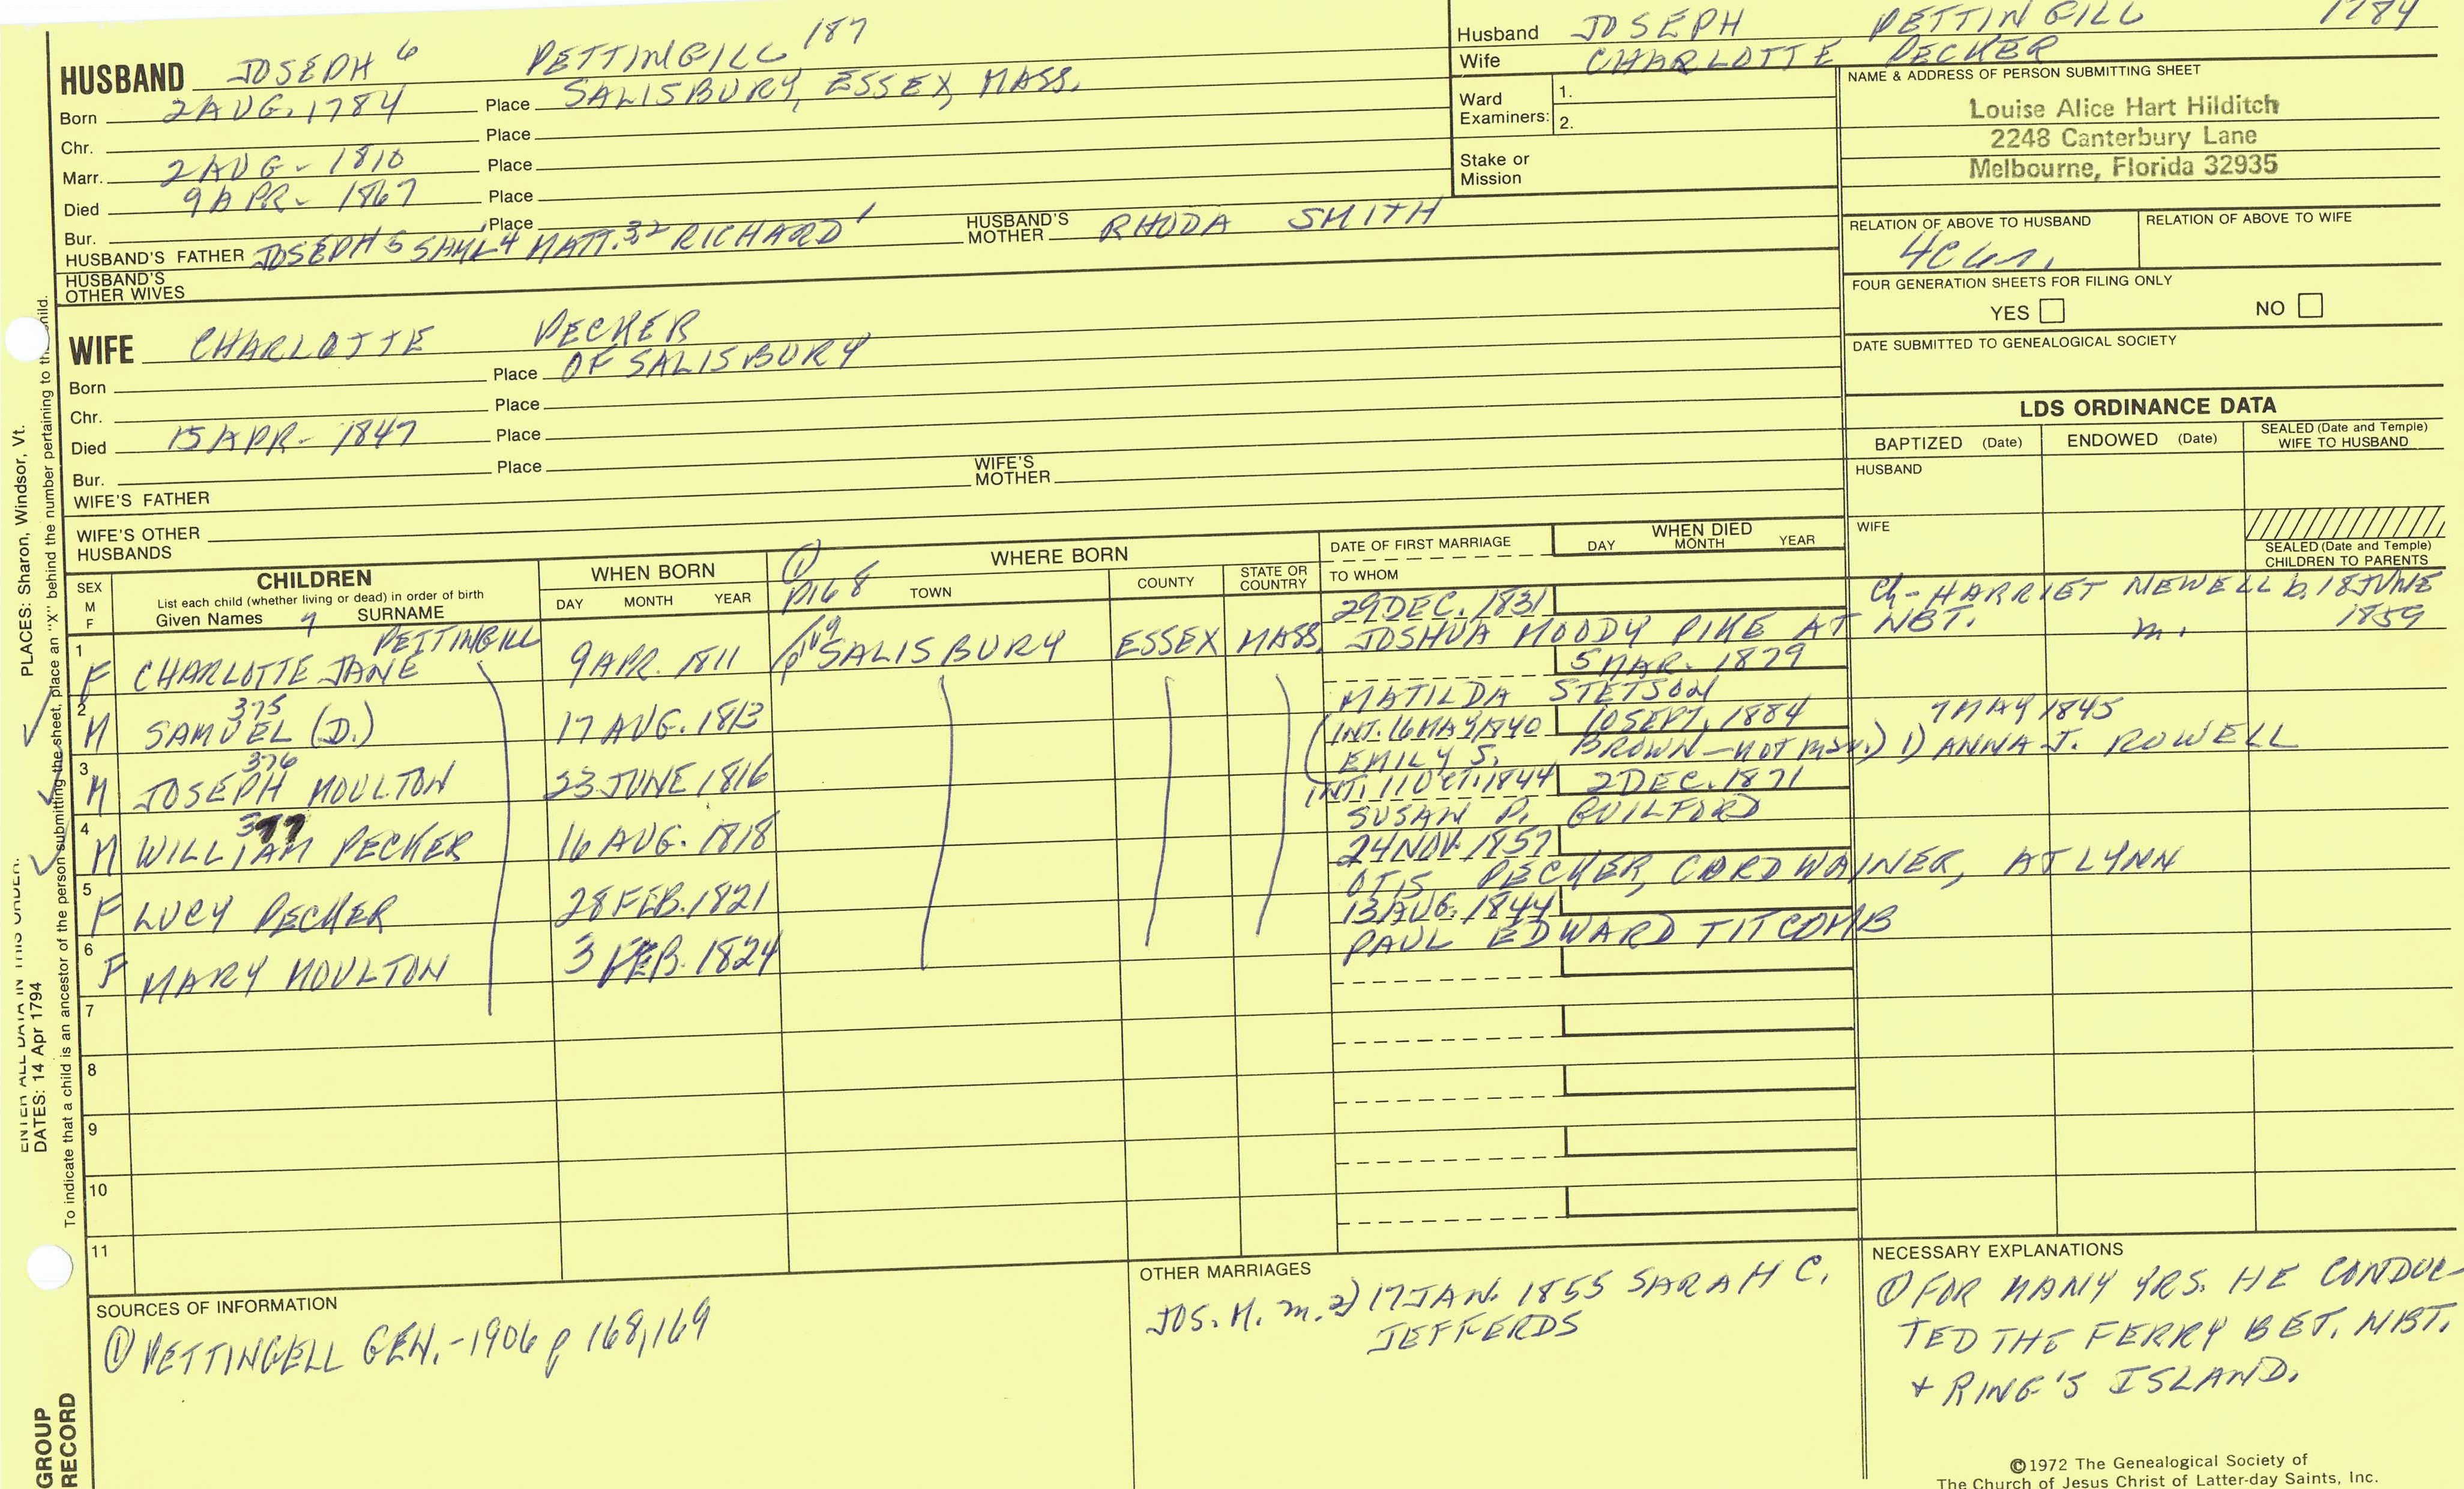 HUSBAND JOSEPH 6 PETTINGILL 187
Born 2 AUG. 1784 Place SALISBURY, ESSEX, MASS.
Chr. Place
Marr. 2 AUG - 1810 Place
Died 9 APR - 1867 Place
Bur. Place
HUSBAND'S FATHER JOSEPH 5 SAML 4 MATT. 3 2 RICHARD 1 HUSBAND'S MOTHER RHODA SMITH
HUSBAND'S OTHER WIVES
WIFE CHARLOTTE PECKER
Born Place OF SALISBURY
Chr. Place
Died 15 APR - 1847 Place
Bur. Place
WIFE'S FATHER WIFE'S MOTHER
WIFE'S OTHER HUSBANDS
Husband JOSEPH PETTINGILL 1784
Wife CHARLOTTE PECKER
Ward Examiners: 1.
2.
Stake or Mission
NAME & ADDRESS OF PERSON SUBMITTING SHEET
Louise Alice Hart Hilditch
2248 Canterbury Lane
Melbourne, Florida 32935
RELATION OF ABOVE TO HUSBAND RELATION OF ABOVE TO WIFE
FOUR GENERATION SHEETS FOR FILING ONLY
YES NO
DATE SUBMITTED TO GENEALOGICAL SOCIETY
LDS ORDINANCE DATA
BAPTIZED (Date) ENDOWED (Date) SEALED (Date and Temple) WIFE TO HUSBAND
HUSBAND
WIFE
SEALED (Date and Temple) CHILDREN TO PARENTS
SEX M F
CHILDREN
List each child (whether living or dead) in order of birth
Given Names 7 SURNAME
WHEN BORN
DAY MONTH YEAR
① P168
WHERE BORN
TOWN COUNTY STATE OR COUNTRY
DATE OF FIRST MARRIAGE
TO WHOM
WHEN DIED
DAY MONTH YEAR
Ch - HARRIET NEWELL b. 18 JUNE 1859
m.
29 DEC. 1831
1 F CHARLOTTE JANE PETTINGILL 9 APR. 1811 SALISBURY ESSEX MASS. JOSHUA MOODY PIKE AT NBT.
5 MAR. 1879
2 M 375 SAMUEL (D.) 17 AUG. 1813 MATILDA STETSON
INT. 16 MAY 1840 10 SEPT. 1884 7 MAY 1845
3 M 376 JOSEPH MOULTON 23 JUNE 1816 EMILY S. BROWN - NOT mar.) 1) ANNA J. ROWELL
INT. 11 OCT. 1844 2 DEC. 1871
4 M 377 WILLIAM PECKER 16 AUG. 1818 SUSAN P. GUILFORD
24 NOV. 1857
5 F LUCY PECKER 28 FEB. 1821 OTIS PECKER, CORDWAINER, AT LYNN
13 AUG. 1844
6 F MARY MOULTON 3 FEB. 1824 PAUL EDWARD TITCOMB
7
8
9
10
11
SOURCES OF INFORMATION
① PETTINGELL GEN. - 1906 p 168, 169
OTHER MARRIAGES
JOS. M. m. 2) 17 JAN. 1855 SARAH C.
JEFFERDS
NECESSARY EXPLANATIONS
① FOR MANY YRS. HE CONDUC-
TED THE FERRY BET. NBT.
+ RING'S ISLAND.
©1972 The Genealogical Society of
The Church of Jesus Christ of Latter-day Saints, Inc.
PLACES: Sharon, Windsor, Vt.
DATES: 14 Apr 1794
To indicate that a child is an ancestor of the person submitting the sheet, place an "X" behind the number pertaining to child.
GROUP RECORD